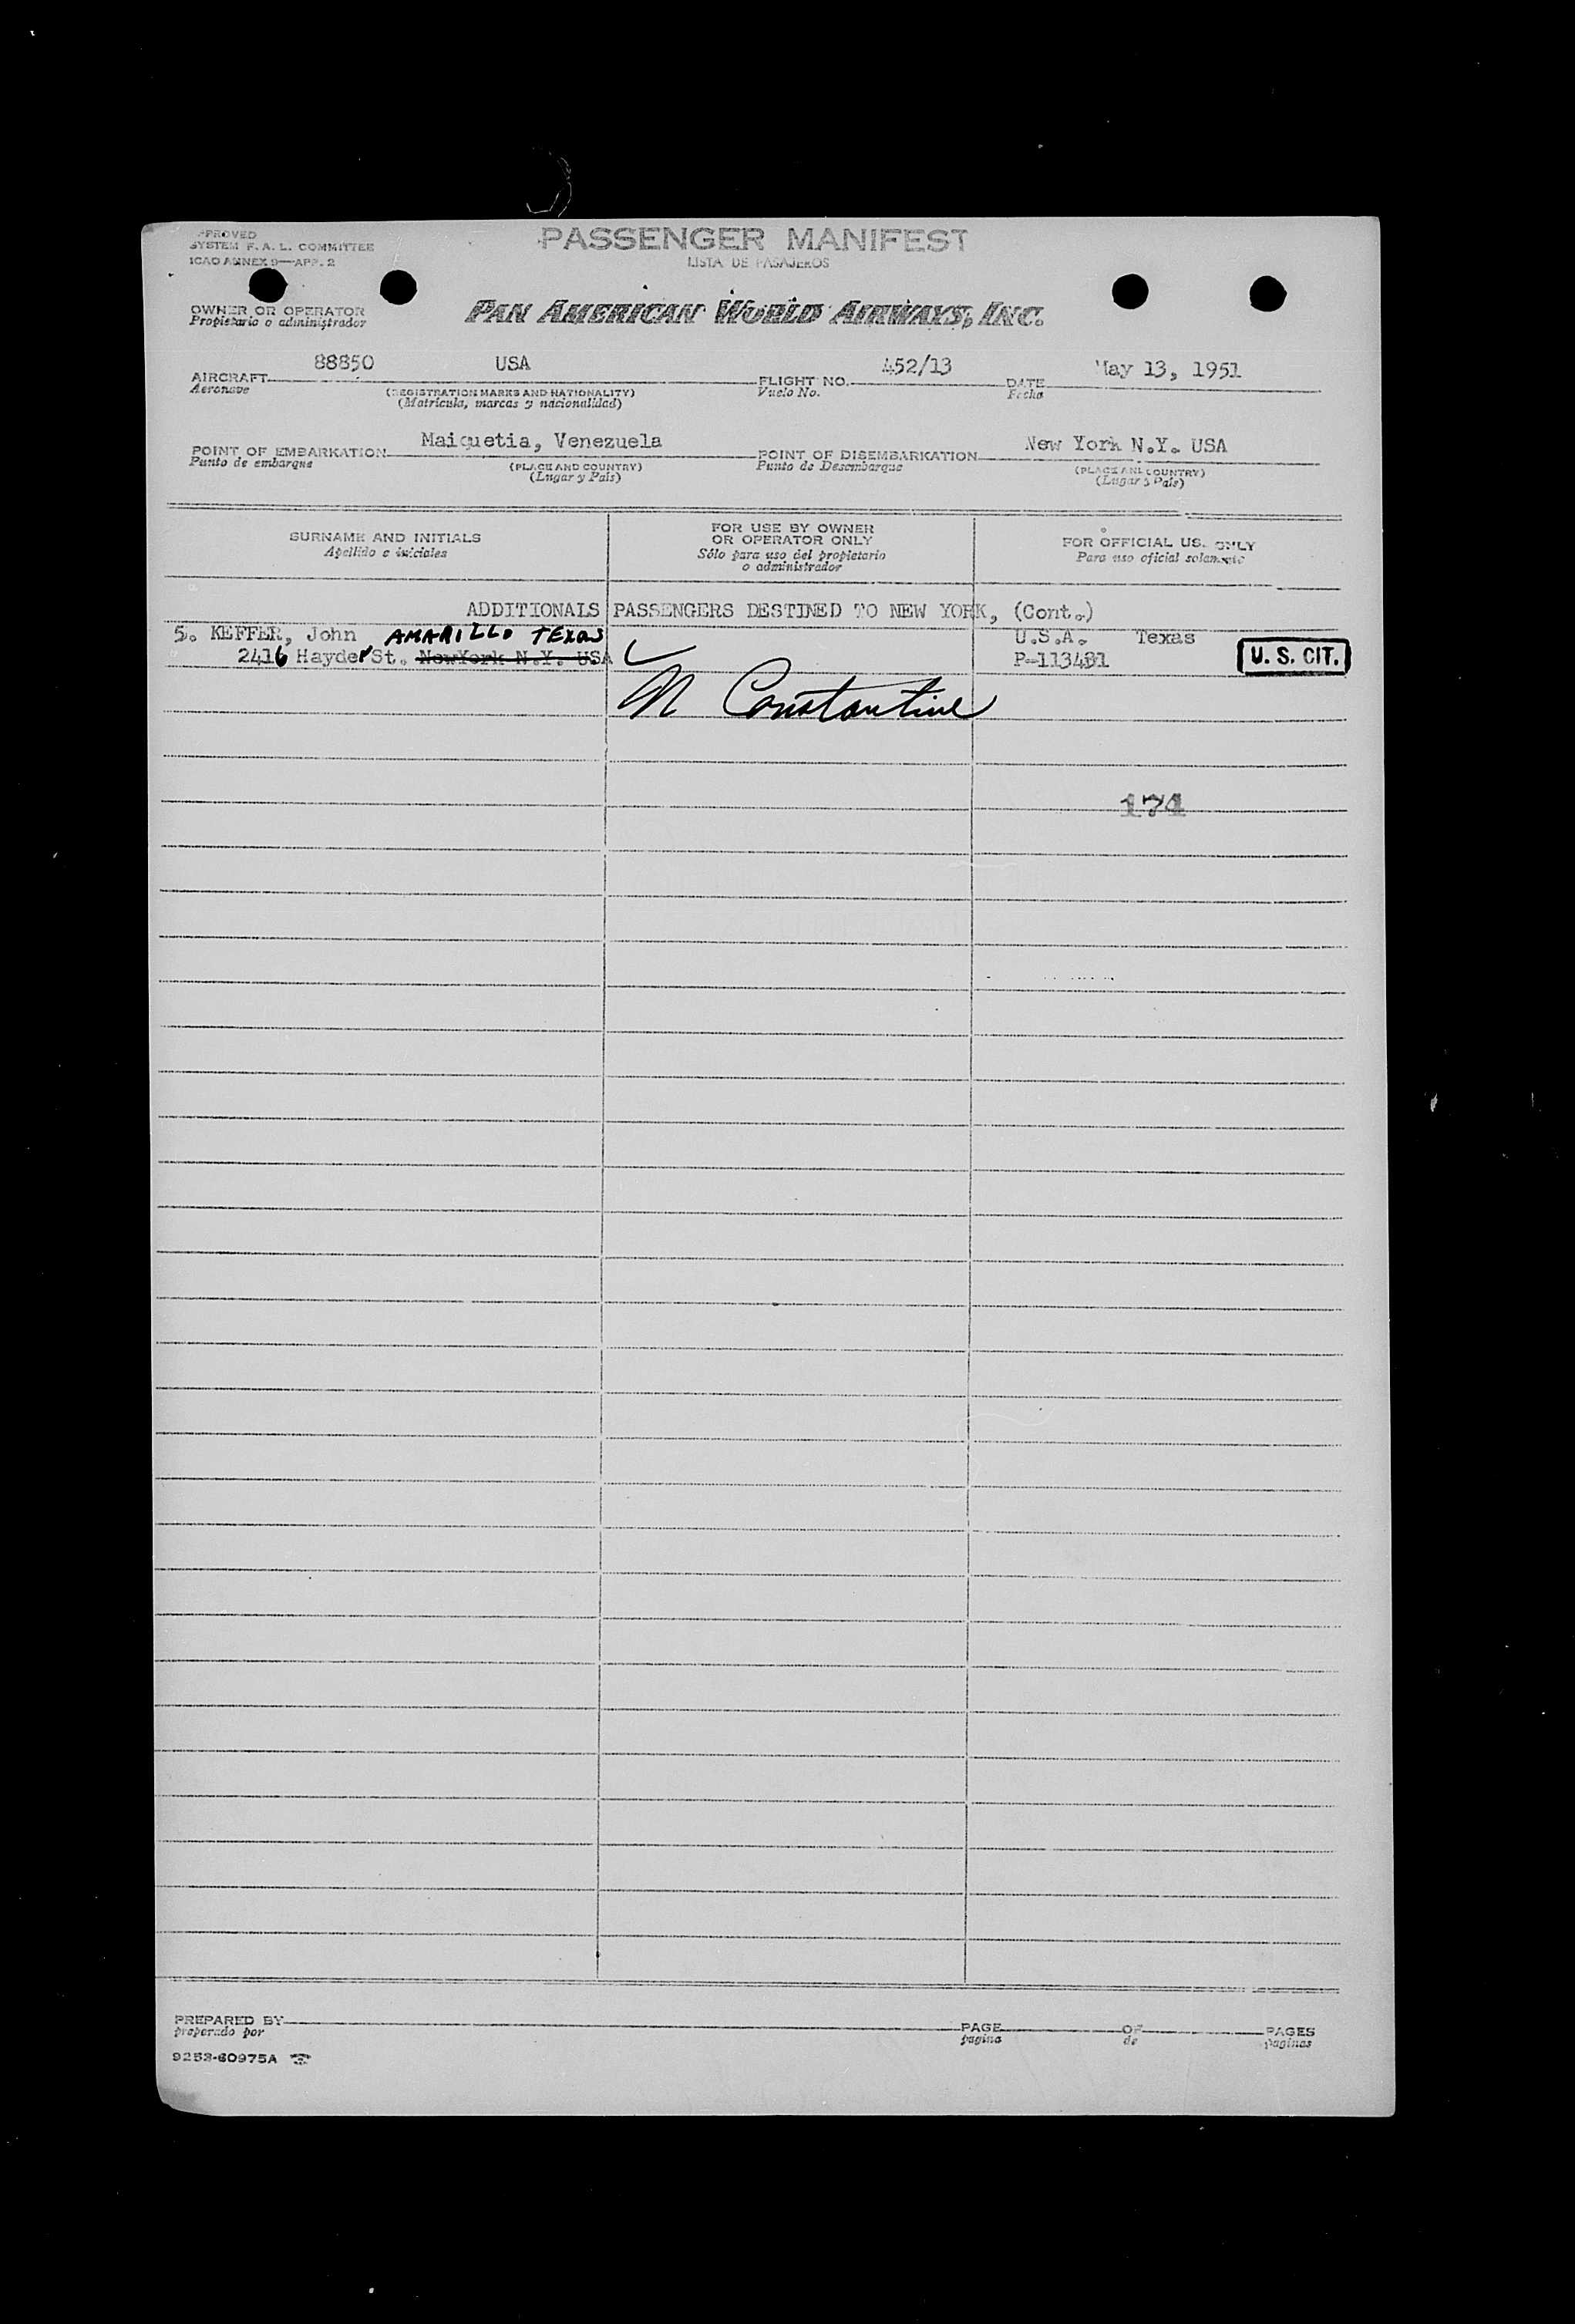 PROVED
SYSTEM F. A. L. COMMITTEE
ICAO ANNEX 9—APP. 2
PASSENGER MANIFEST
LISTA DE PASAJEROS
OWNER OR OPERATOR
Propietario o administrador
PAN AMERICAN WORLD AIRWAYS, INC.
AIRCRAFT 88850 USA FLIGHT NO. 452/13 DATE May 13, 1951
Aeronave (REGISTRATION MARKS AND NATIONALITY) Vuelo No. Fecha
(Matrícula, marcas y nacionalidad)
POINT OF EMBARKATION Maiquetia, Venezuela POINT OF DISEMBARKATION New York N.Y. USA
Punto de embarque (PLACE AND COUNTRY) Punto de Desembarque (PLACE AND COUNTRY)
(Lugar y País) (Lugar y País)
SURNAME AND INITIALS
Apellido e iniciales
FOR USE BY OWNER
OR OPERATOR ONLY
Sólo para uso del propietario
o administrador
FOR OFFICIAL US. ONLY
Para uso oficial solamente
ADDITIONALS PASSENGERS DESTINED TO NEW YORK, (Cont.)
5. KEFFER, John AMARILLO TEXAS U.S.A. Texas
2416 Hayder St. NewYork N.Y. USA P-113481 U. S. CIT.
M Constantine
174
PREPARED BY PAGE OF PAGES
preparado por pagina de paginas
9253-60975A